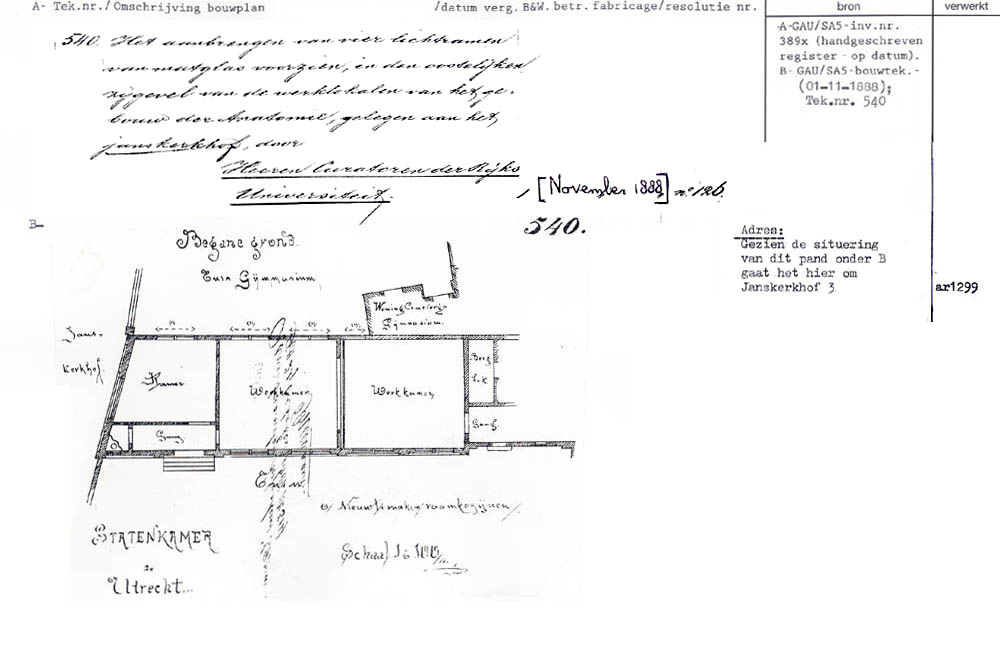 A- Tek.nr./Omschrijving bouwplan /datum verg. B&W. betr. fabricage/resolutie nr. bron verwerkt
540. Het aanbrengen van vier lichtramen
van matglas voorzien, in den oostelijken
zijgevel van de werklokalen van het ge-
bouw der Anatomie, gelegen aan het
janskerkhof, door
Heeren Curatoren der Rijks
Universiteit.
, [November 1888] no 126.
A-GAU/SA5-inv.nr.
389x (handgeschreven
register - op datum).
B- GAU/SA5-bouwtek.-
(01-11-1888);
Tek.nr. 540
B-
540.
Adres:
Gezien de situering
van dit pand onder B
gaat het hier om
Janskerkhof 3
ar1299
Begane grond.
Tuin Gymnasium
Woning Concierge
Gymnasium.
Jans-
kerkhof
Kamer
Werkkamer
Werkkamer
Berg
Gang
Gang
a/ Nieuw te maken raamkozijnen
STATENKAMER
te
Utrecht...